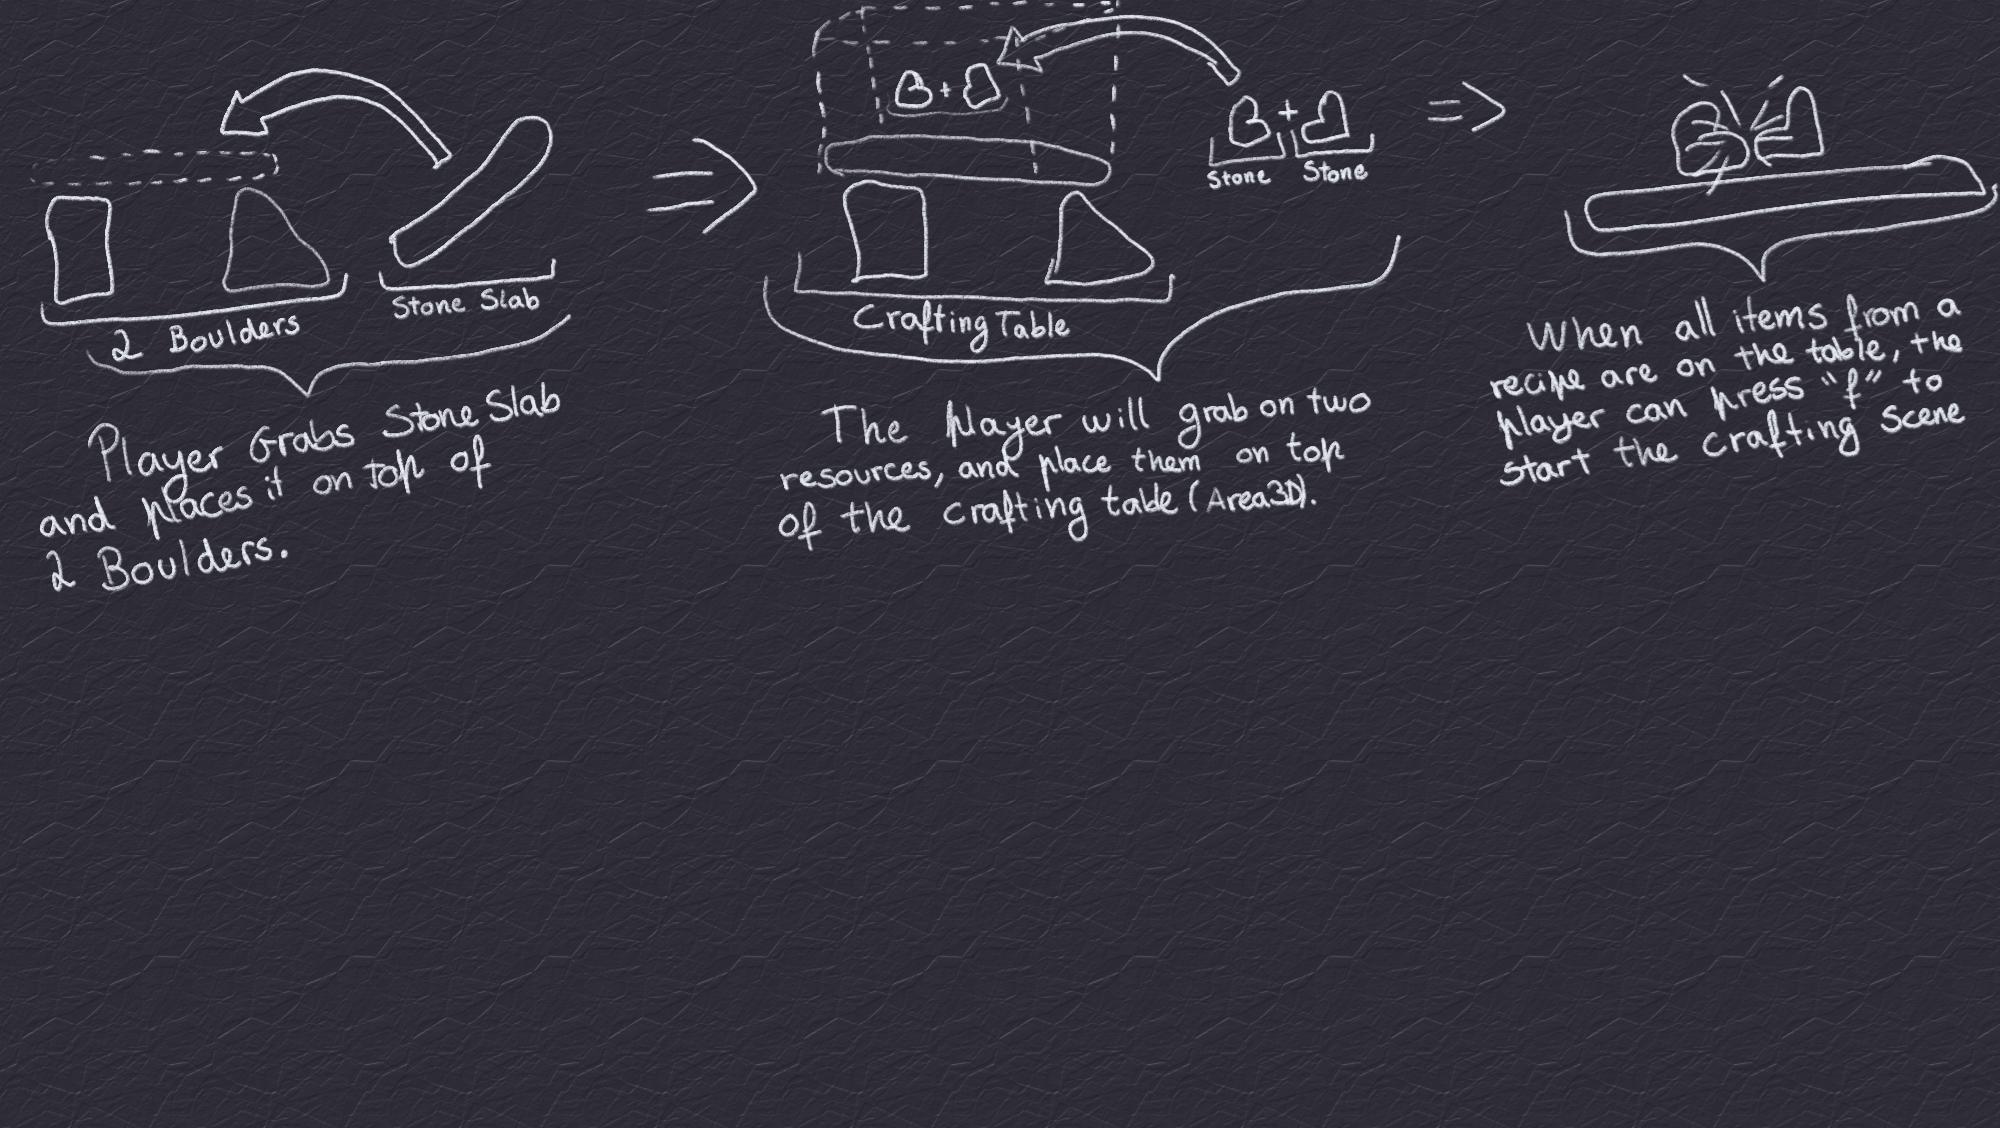 2 Boulders
Stone Slab
Player Grabs Stone Slab
and places it on top of
2 Boulders.
+
Crafting Table
+
Stone Stone
The player will grab on two
resources, and place them on top
of the crafting table (Area3D).
When all items from a
recipe are on the table, the
player can press "f" to
start the crafting scene